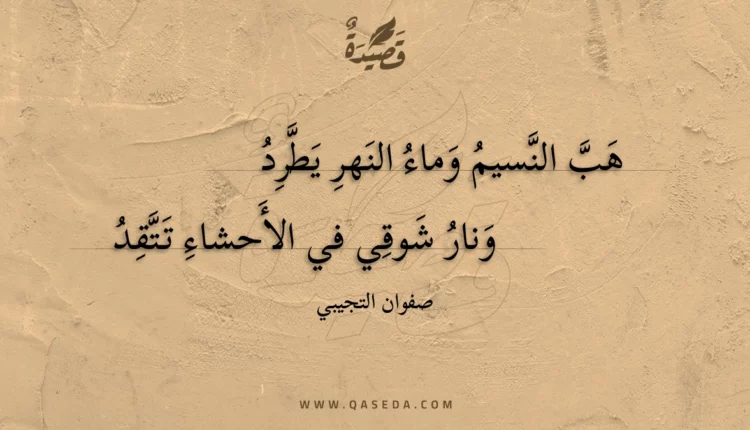 قَصِيْدَةٌ
هَبَّ النَّسيمُ وَماءُ النَهرِ يَطَّرِدُ
وَنارُ شَوقِي في الأَحشاءِ تَتَّقِدُ
صفوان التجيبي
WWW.QASEDA.COM